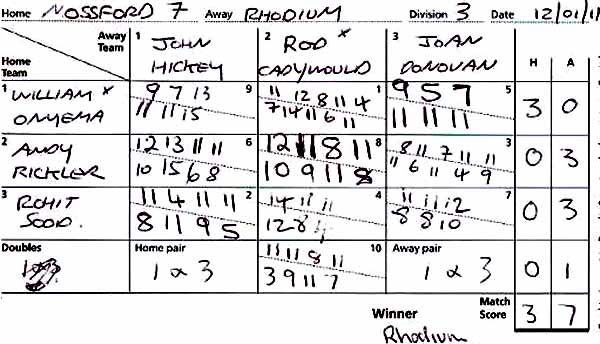 Home NOSSFORD 7 Away RHODIUM Division 3 Date 12/01/11
Away Team
Home Team
1 JOHN HICKEY
2 ROD x CADYWOULD
3 JOAN DONOVAN
H A
1 WILLIAM x ONYEMA
9 7 13 9
11 11 15
11 12 8 11 4 1
7 14 11 6 11
9 5 7 5
11 11 11
3 0
2 ANDY RICKLER
12 13 11 11 6
10 15 6 8
12 11 8 11 8
10 9 11 8
8 11 7 11 11 3
11 6 11 4 9
0 3
3 ROHIT SOOD
11 4 11 11 2
8 11 9 5
14 11 11 4
12 8
11 11 12 7
8 8 10
0 3
Doubles
Home pair
1 & 3
11 11 8 11 10
3 9 11 7
Away pair
1 & 3
0 1
Winner
Rhodium
Match Score 3 7